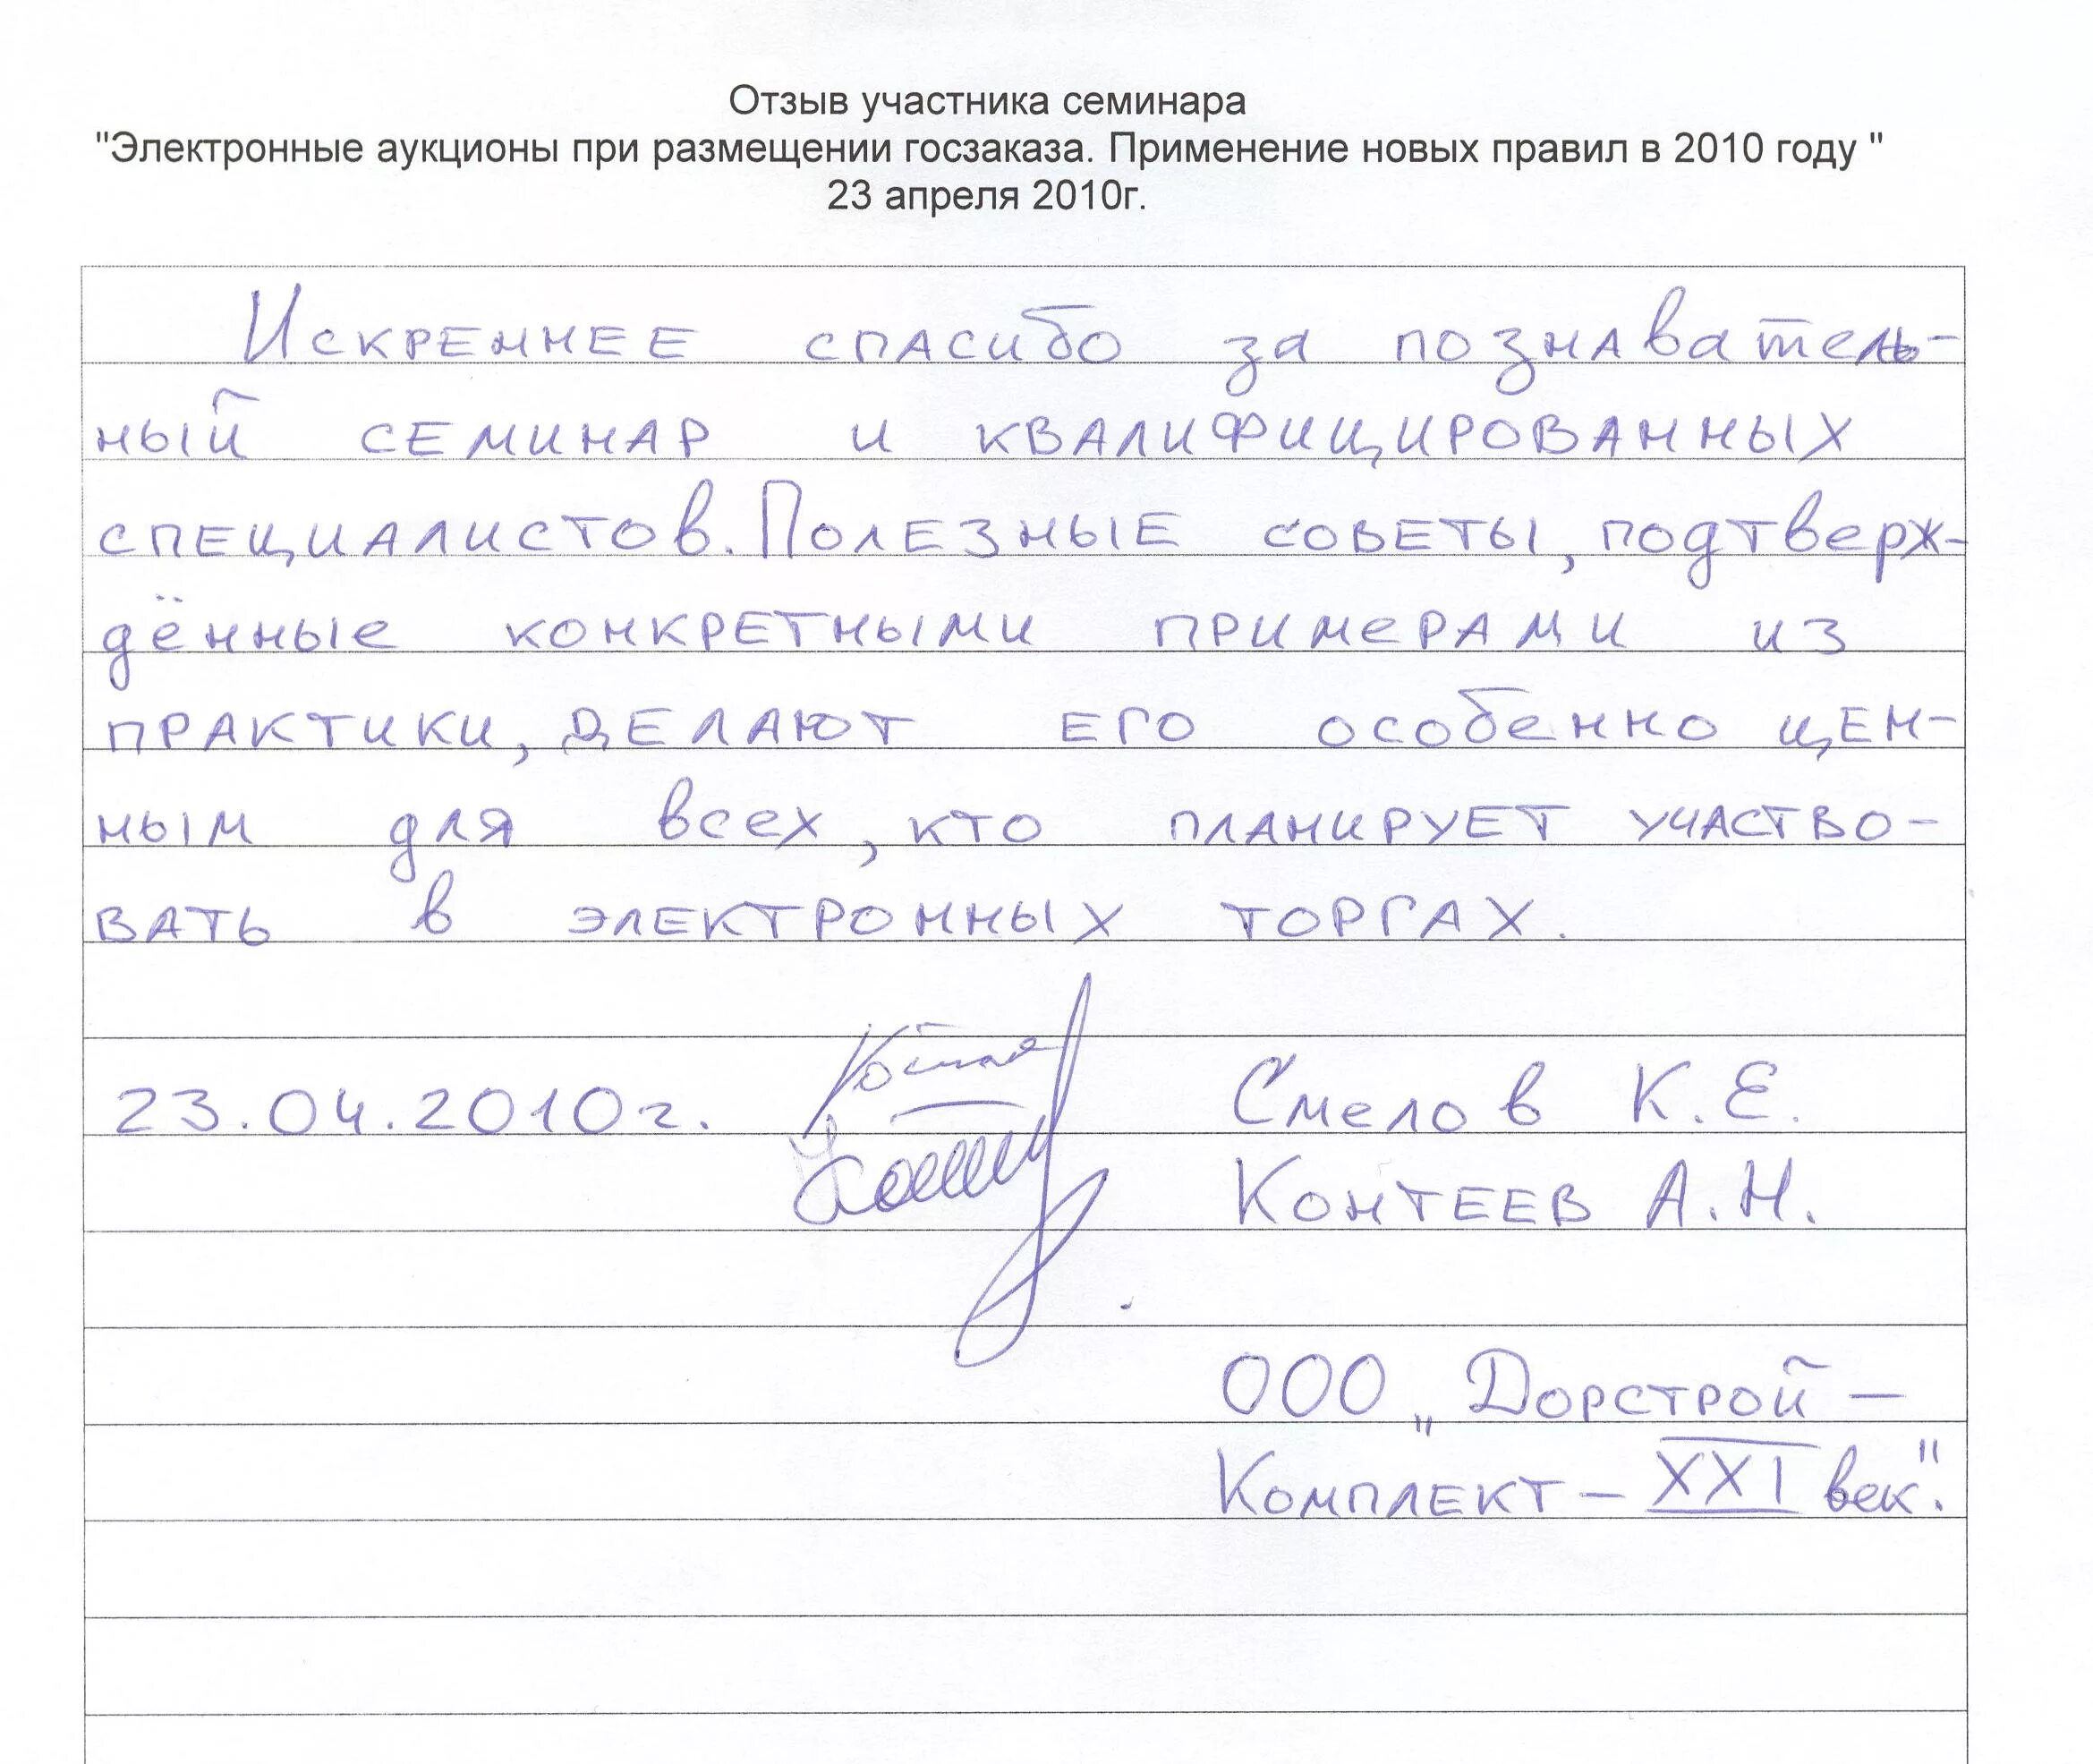 Отзыв участника семинара
"Электронные аукционы при размещении госзаказа. Применение новых правил в 2010 году "
23 апреля 2010г.
Искреннее спасибо за познаватель-
ный семинар и квалифицированных
специалистов. Полезные советы, подтверж-
дённые конкретными примерами из
практики, делают его особенно цен-
ным для всех, кто планирует участво-
вать в электронных торгах.
23.04.2010г. Смелов К.Е.
Контеев А.Н.
ООО „Дорстрой –
Комплект – XXI век".